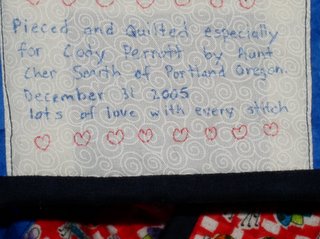 Pieced and Quilted especially
for Cody Perrott by Aunt
Cher Searth of Portland Oregon.
December 31 2005
lots of love with every stitch